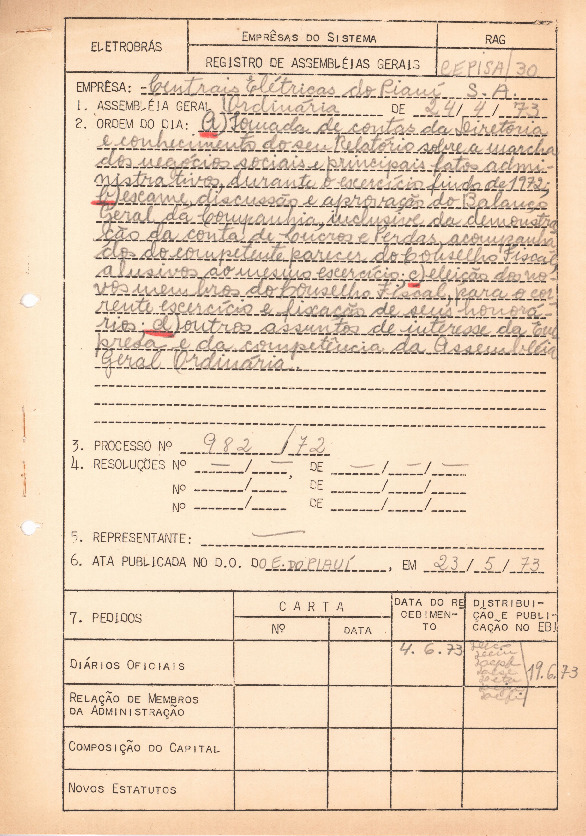 ELETROBRÁS
EMPRÊSAS DO SISTEMA
REGISTRO DE ASSEMBLÉIAS GERAIS
RAG
CEPISA/30
EMPRÊSA: Centrais Elétricas do Piauí S.A.
1. ASSEMBLÉIA GERAL Ordinária DE 24/4/73
2. ORDEM DO DIA: a) Tomada de contas da Diretoria
e conhecimento do seu Relatório sobre a marcha
dos negócios sociais e principais fatos admi-
nistrativos, durante o exercício findo de 1972;
b) exame, discussão e aprovação do Balanço
Geral da Companhia, inclusive da demonstra
ção da conta de Lucros e Perdas, acompanha
dos do competente parecer do Conselho Fiscal,
alusivos ao mesmo exercício; c) eleição dos no-
vos membros do Conselho Fiscal, para o cor
rente exercício e fixação de seus honorá-
rios; d) outros assuntos de interesse da Em
presa e da competência da Assembléia
Geral Ordinária.
3. PROCESSO Nº 982/72
4. RESOLUÇÕES Nº —/—, DE —/—/—
Nº / DE / /
Nº / DE / /
5. REPRESENTANTE: —
6. ATA PUBLICADA NO D.O. DO E. DO PIAUÍ, EM 23/5/73
7. PEDIDOS
CARTA
Nº
DATA
DATA DO RE
CEBIMEN-
TO
DISTRIBUI-
ÇÃO E PUBLI-
CAÇÃO NO EBI
DIÁRIOS OFICIAIS
4.6.73
19.6.73
RELAÇÃO DE MEMBROS
DA ADMINISTRAÇÃO
COMPOSIÇÃO DO CAPITAL
NOVOS ESTATUTOS